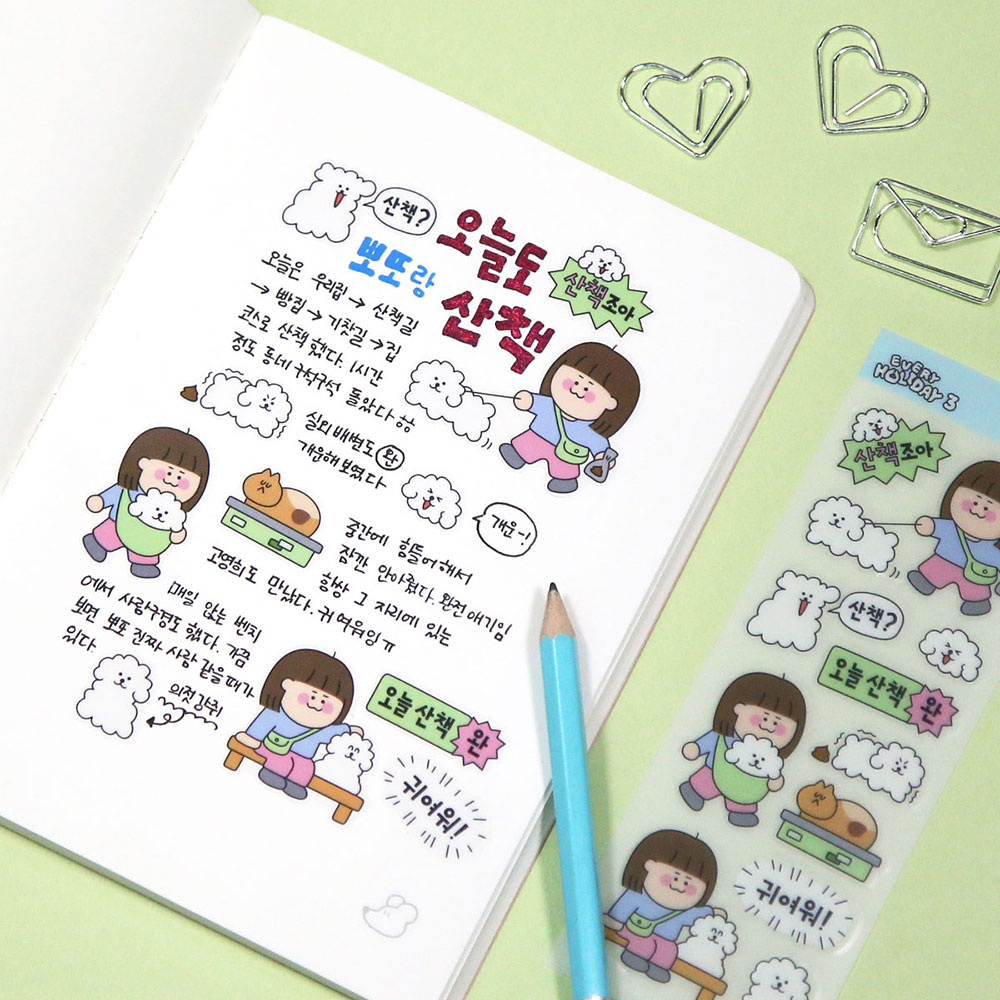 산책?
오늘도
뽀또랑
산책
산책조아
오늘은 우리집 → 산책길
→ 빵집 → 기찻길 → 집
코스로 산책했다. 1시간
정도 동네 구석구석 돌았다ㅎㅎ
실외배변도 완
개운해보였다
개운~!
중간에 힘들어해서
잠깐 안아줬다. 완전 애기임
항상 그 자리에 있는
고영희도 만났다. 귀여워잉ㅠ
매일 앉는 벤치
에서 사람구경도 했다. 가끔
보면 뽀또 진짜 사람 같을 때가
있다
의젓강쥐
오늘 산책 완
귀여워!
EVERY
HOLIDAY 3
산책조아
산책?
오늘 산책 완
귀여워!